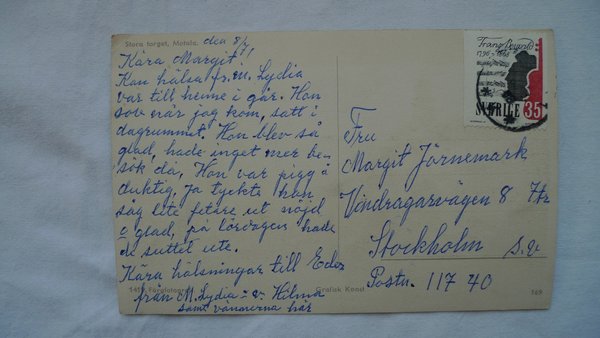 Stora torget, Motala, den 8/7
Kära Margit!!
Kan hälsa fr. M. Lydia
var till henne i går. Hon
sov när jag kom, satt i
dagrummet. Hon blev så
glad, hade inget mer be-
sök då. Hon var pigg å
duktig. Ja tyckte hon
såg lite fetare ut nöjd
o glad, på lördagen hade
de suttet ute.
Kära hälsningar till Eder
från M. Lydia o. Hilma
samt vännerna här
Grafisk Konst
Franz Berwald
1796-1868
SVERIGE 35
Fru
Margit Törnemark
Vindragarvägen 8
Stockholm S.V.
Postn. 117 40
369